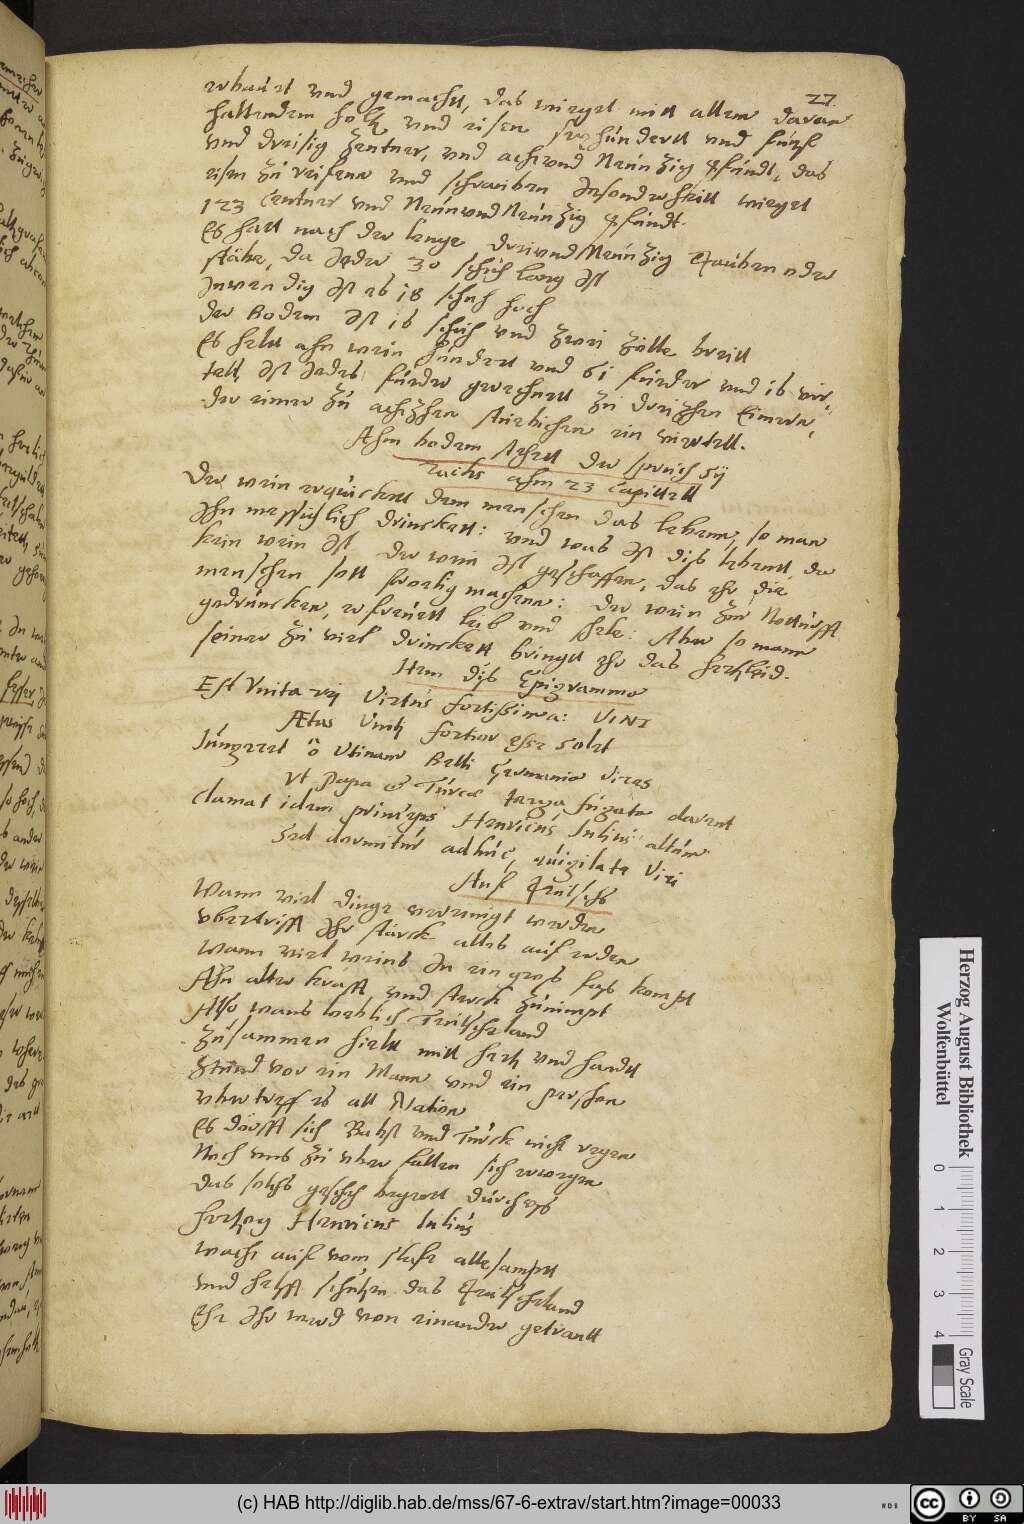 27.
erbauet und gemacht, das wieget mitt allem daran
haltendem holtz und eisen sechshundertt und fünf
und dreisig Zentner, und acht und Neünzig Pfundt, das
eisen zu reifenn und schrauben Insonderheitt wieget
123 Centner und Neün und Neünzig Pfundt.
Es hatt nach der lenge drei und Neünzig Tauben oder
stäbe, da Jeder 30 schuch lang Ist
Inwendig Ist es 18 schuh hoch
der Bodem Ist 16 schuh und zwei zölle breitt
Es heltt ahn wein hundertt und 61 fuder und 16 vier,
tell, Ist Jedes fuder gerechnett zu dreizehen Eimern,
der eimer zu achtzehen stübichen ein viertell.
Ahm bodem stehett der spruch Sy
rachs ahm 23 Capittell
Der wein erquickett dem menschen das lebenn, so man
Ihn messiglich drinckett: und was Ist dis lebent, da
kein wein Ist der wein Ist geschaffen, das ehr die
menschen soll froelig machenn: der wein zur Notturfft
gedruncken, erfreuett leib und seele: Aber so mann
seiner zu viel drinckett bringet ehr das hertzleid.
Item dis Epigramma
Est Unita rei Virtus fortissima: VINI
Ætas Unitj fortior esse solet
Jungeret ô Utinam Belli Germania vires
Ut Papa & Turca terga fugata darent
Clamat idem princeps Henricus Julius altum
Sed dormitur adhuc, euigilate Viri
Auf Teutsch
Wann viel dinge vereinigt werden
Ubertrifft Ihr stärck alles auf erden
Wann viel weins In ein gros fass kompt
Ahn aller krafft und sterck zunimpt
Also wans löblich Teutschland
zusammen hielt mitt hertz und handt
Stund vor ein Mann und ein person
ubertreff es all Nation
Es dörfft sich Babst und Türck nicht regen
Noch uns zu uber fallen sich erwegen
das solchs geschech begert durchaus
Hertzog Henricus Julius
Wacht auf vom schlaf alle sampt
und helfft schützen das Teutschland
Ehe Ihr werd von einander getrantt
Herzog August Bibliothek
Wolfenbüttel
0 1 2 3 4
Gray Scale
(c) HAB http://diglib.hab.de/mss/67-6-extrav/start.htm?image=00033
WDB
CC BY SA